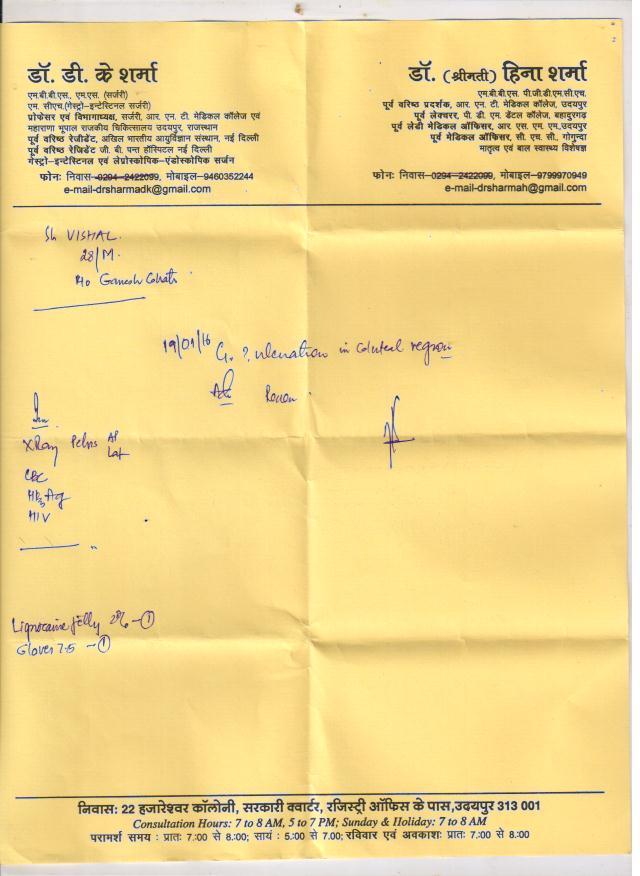 डॉ. डी. के शर्मा
एम.बी.बी.एस., एम.एस. (सर्जरी)
एम. सीएच.(गेस्ट्रो-इन्टेस्टिनल सर्जरी)
प्रोफेसर एवं विभागाध्यक्ष, सर्जरी, आर. एन. टी. मेडिकल कॉलेज एवं
महाराणा भूपाल राजकीय चिकित्सालय उदयपुर, राजस्थान
पूर्व वरिष्ठ रेजीडेंट, अखिल भारतीय आयुर्विज्ञान संस्थान, नई दिल्ली
पूर्व वरिष्ठ रेजिडेंट जी. बी. पन्त हॉस्पिटल नई दिल्ली
गेस्ट्रो-इन्टेस्टिनल एवं लेप्रोस्कोपिक-एंडोस्कोपिक सर्जन
फोनः निवास-0294-2422099, मोबाइल-9460352244
e-mail-drsharmadk@gmail.com
डॉ. (श्रीमती) हिना शर्मा
एम.बी.बी.एस. पी.जी.डी.एम.सी.एच.
पूर्व वरिष्ठ प्रदर्शक, आर. एन. टी. मेडिकल कॉलेज, उदयपुर
पूर्व लेक्चरर, पी. डी. एम. डेंटल कॉलेज, बहादुरगढ़
पूर्व लेडी मेडिकल ऑफिसर, आर. एस. एम. एम.,उदयपुर
पूर्व मेडिकल ऑफिसर, सी. एच. सी., गोगुन्दा
मातृत्व एवं बाल स्वास्थ्य विशेषज्ञ
फोनः निवास-0294-2422099, मोबाइल-9799970949
e-mail-drsharmah@gmail.com
Sh VISHAL.
28/M.
R/o Ganesh Ghati
19/01/16 ? ulceration in Gluteal region
XRay Pelvis AP
Lat
CBC
HBsAg
HIV
Lignocaine Jelly 2% - 1
Gloves 7.5 - 1
निवासः 22 हजारेश्वर कॉलोनी, सरकारी क्वार्टर, रजिस्ट्री ऑफिस के पास,उदयपुर 313 001
Consultation Hours: 7 to 8 AM, 5 to 7 PM; Sunday & Holiday: 7 to 8 AM
परामर्श समय : प्रातः 7:00 से 8:00; सायं : 5:00 से 7.00; रविवार एवं अवकाशः प्रातः 7:00 से 8:00